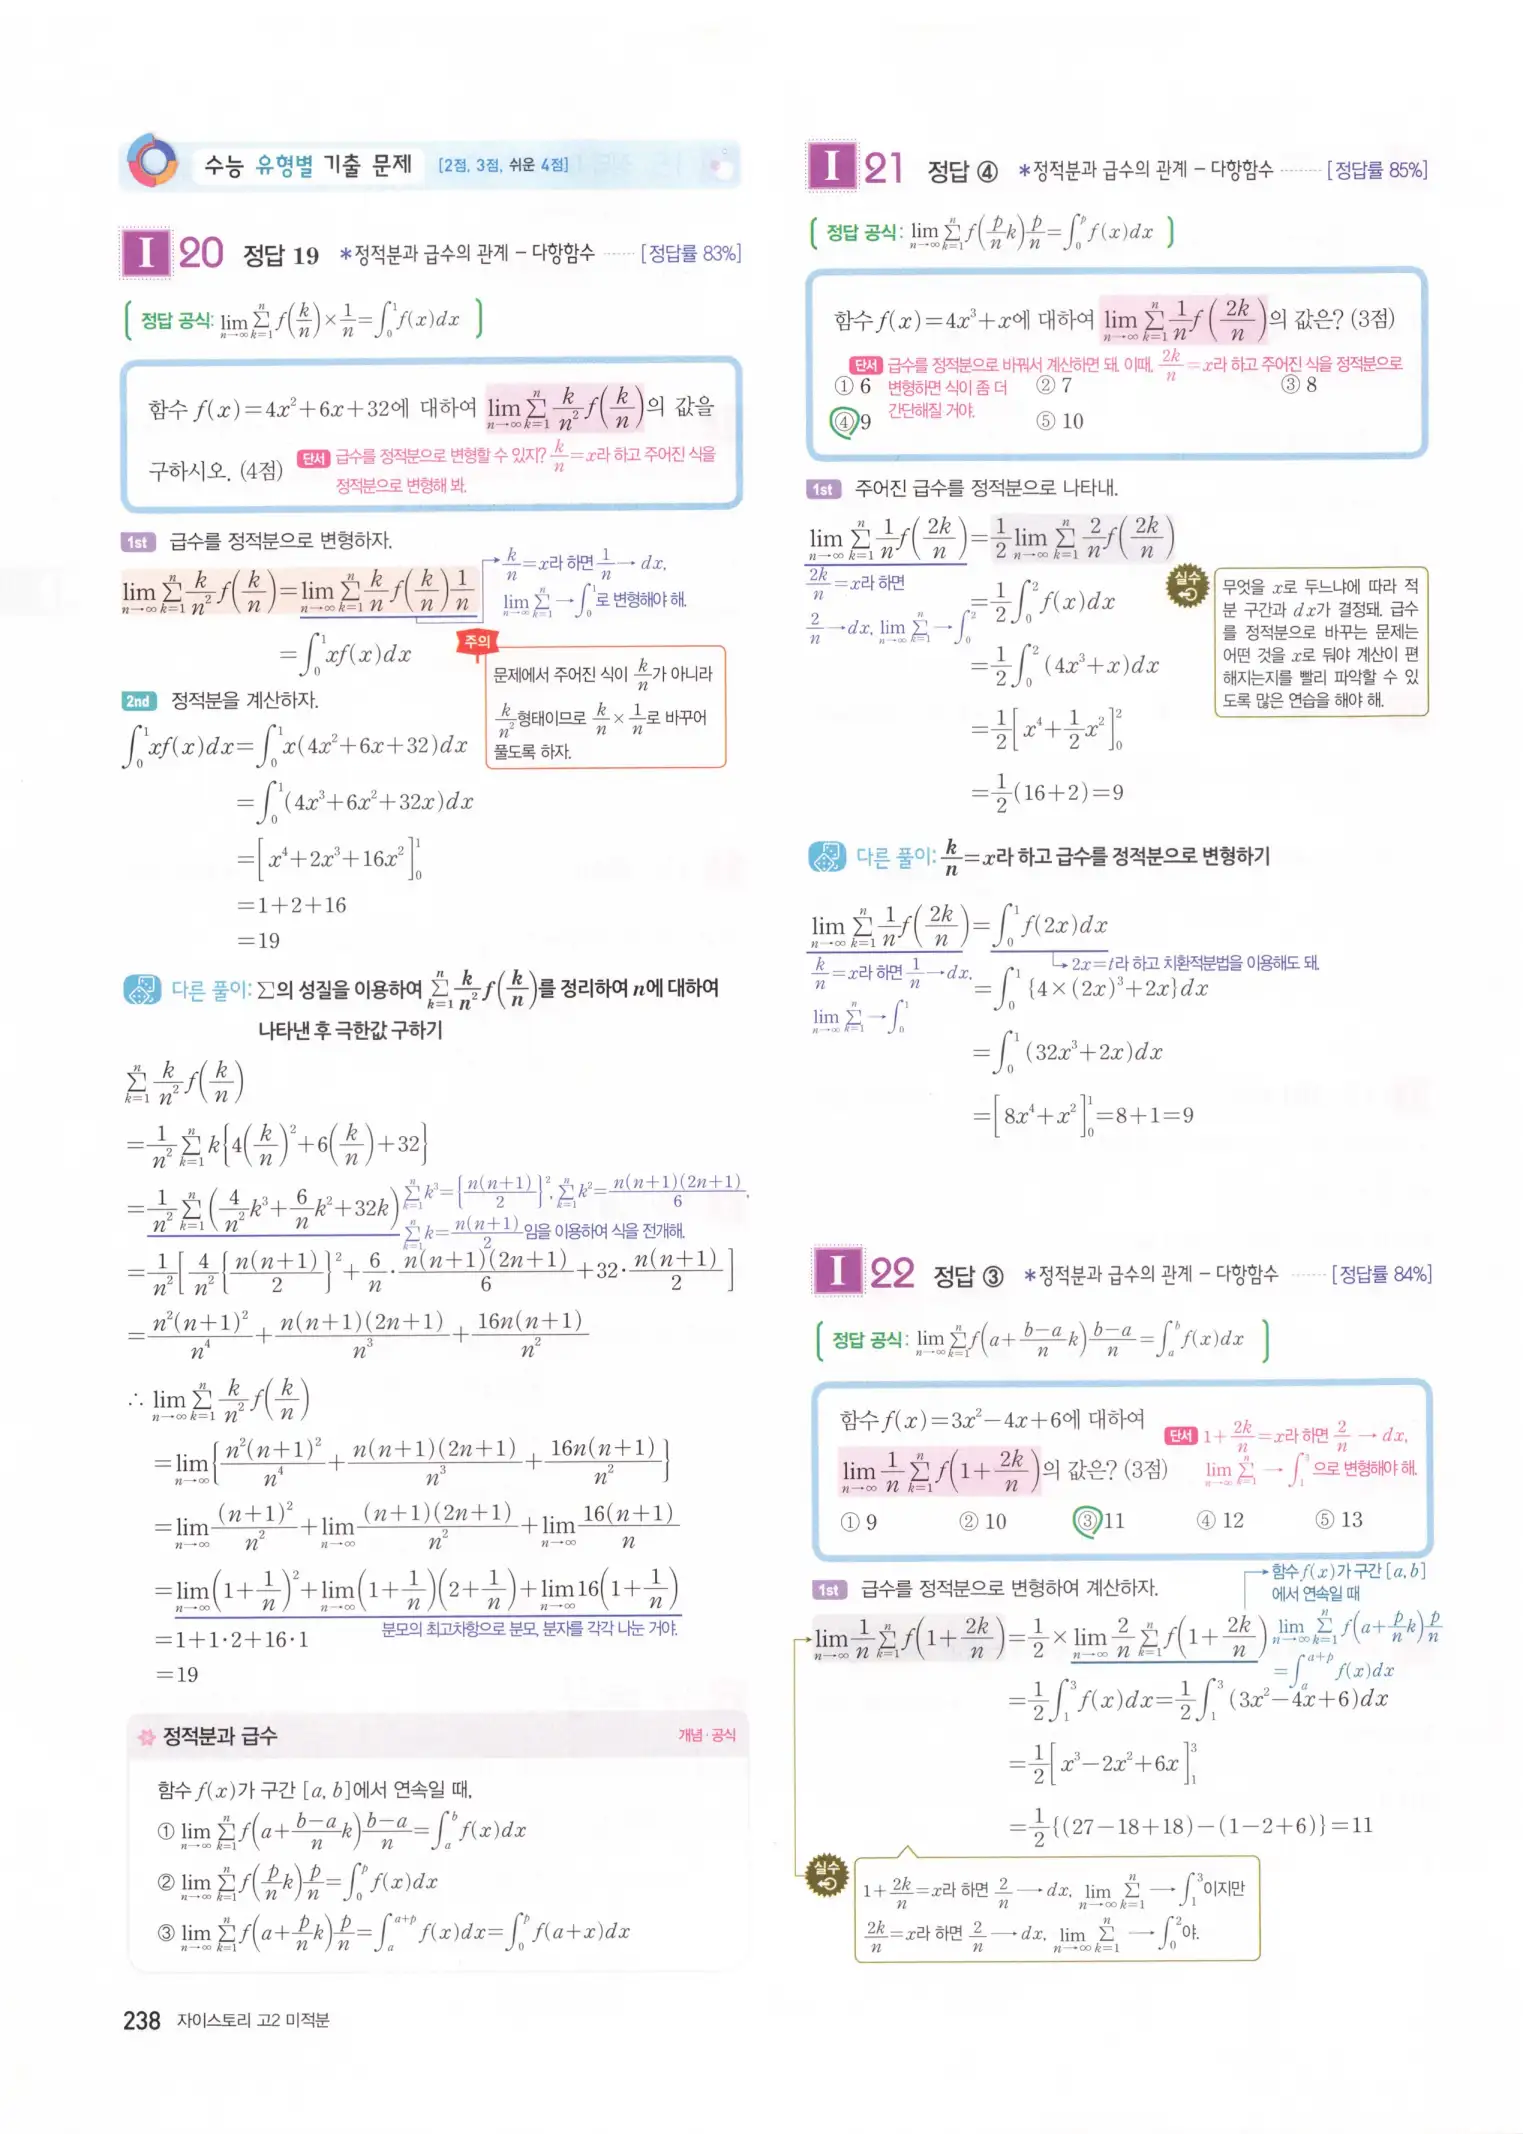 수능 유형별 기출 문제 [2점, 3점, 쉬운 4점]
I 20 정답 19 *정적분과 급수의 관계 – 다항함수 ······ [정답률 83%]
정답 공식: lim_{n→∞} Σ_{k=1}^{n} f(k/n)×1/n=∫_0^1 f(x)dx
함수 f(x)=4x²+6x+32에 대하여 lim_{n→∞} Σ_{k=1}^{n} k/n² f(k/n)의 값을
구하시오. (4점)
단서 급수를 정적분으로 변형할 수 있지? k/n=x라 하고 주어진 식을
정적분으로 변형해 봐.
1st 급수를 정적분으로 변형하자.
lim_{n→∞} Σ_{k=1}^{n} k/n² f(k/n)=lim_{n→∞} Σ_{k=1}^{n} k/n f(k/n) 1/n
k/n=x라 하면 1/n → dx,
lim_{n→∞} Σ_{k=1}^{n} → ∫_0^1로 변형해야 해.
=∫_0^1 xf(x)dx
주의
문제에서 주어진 식이 k/n가 아니라
k/n²형태이므로 k/n × 1/n로 바꾸어
풀도록 하자.
2nd 정적분을 계산하자.
∫_0^1 xf(x)dx=∫_0^1 x(4x²+6x+32)dx
=∫_0^1 (4x³+6x²+32x)dx
=[x⁴+2x³+16x²]_0^1
=1+2+16
=19
다른 풀이: Σ의 성질을 이용하여 Σ_{k=1}^{n} k/n² f(k/n)를 정리하여 n에 대하여
나타낸 후 극한값 구하기
Σ_{k=1}^{n} k/n² f(k/n)
=1/n² Σ_{k=1}^{n} k{4(k/n)²+6(k/n)+32}
=1/n² Σ_{k=1}^{n} (4/n² k³+6/n k²+32k)
Σ_{k=1}^{n} k³={n(n+1)/2}², Σ_{k=1}^{n} k²=n(n+1)(2n+1)/6,
Σ_{k=1}^{n} k=n(n+1)/2임을 이용하여 식을 전개해.
=1/n² [4/n² {n(n+1)/2}²+6/n·n(n+1)(2n+1)/6+32·n(n+1)/2]
=n²(n+1)²/n⁴+n(n+1)(2n+1)/n³+16n(n+1)/n²
∴ lim_{n→∞} Σ_{k=1}^{n} k/n² f(k/n)
=lim_{n→∞} {n²(n+1)²/n⁴+n(n+1)(2n+1)/n³+16n(n+1)/n²}
=lim_{n→∞} (n+1)²/n²+lim_{n→∞} (n+1)(2n+1)/n²+lim_{n→∞} 16(n+1)/n
=lim_{n→∞}(1+1/n)²+lim_{n→∞}(1+1/n)(2+1/n)+lim_{n→∞}16(1+1/n)
분모의 최고차항으로 분모, 분자를 각각 나눈 거야.
=1+1·2+16·1
=19
정적분과 급수 개념·공식
함수 f(x)가 구간 [a, b]에서 연속일 때,
① lim_{n→∞} Σ_{k=1}^{n} f(a+(b-a)/n k)(b-a)/n=∫_a^b f(x)dx
② lim_{n→∞} Σ_{k=1}^{n} f(p/n k)p/n=∫_0^p f(x)dx
③ lim_{n→∞} Σ_{k=1}^{n} f(a+p/n k)p/n=∫_a^{a+p} f(x)dx=∫_0^p f(a+x)dx
238 자이스토리 고2 미적분
I 21 정답 ④ *정적분과 급수의 관계 – 다항함수 ······ [정답률 85%]
정답 공식: lim_{n→∞} Σ_{k=1}^{n} f(p/n k)p/n=∫_0^p f(x)dx
함수 f(x)=4x³+x에 대하여 lim_{n→∞} Σ_{k=1}^{n} 1/n f(2k/n)의 값은? (3점)
단서 급수를 정적분으로 바꿔서 계산하면 돼. 이때, 2k/n=x라 하고 주어진 식을 정적분으로
변형하면 식이 좀 더
간단해질 거야.
① 6 ② 7 ③ 8
④ 9 ⑤ 10
1st 주어진 급수를 정적분으로 나타내.
lim_{n→∞} Σ_{k=1}^{n} 1/n f(2k/n)=1/2 lim_{n→∞} Σ_{k=1}^{n} 2/n f(2k/n)
2k/n=x라 하면
2/n→dx, lim_{n→∞} Σ_{k=1}^{n}→∫_0^2
=1/2 ∫_0^2 f(x)dx
=1/2 ∫_0^2 (4x³+x)dx
=1/2 [x⁴+1/2 x²]_0^2
=1/2 (16+2)=9
실수
무엇을 x로 두느냐에 따라 적
분 구간과 dx가 결정돼. 급수
를 정적분으로 바꾸는 문제는
어떤 것을 x로 둬야 계산이 편
해지는지를 빨리 파악할 수 있
도록 많은 연습을 해야 해.
다른 풀이: k/n=x라 하고 급수를 정적분으로 변형하기
lim_{n→∞} Σ_{k=1}^{n} 1/n f(2k/n)=∫_0^1 f(2x)dx
k/n=x라 하면 1/n→dx,
lim_{n→∞} Σ_{k=1}^{n}→∫_0^1
2x=t라 하고 치환적분법을 이용해도 돼.
=∫_0^1 {4×(2x)³+2x}dx
=∫_0^1 (32x³+2x)dx
=[8x⁴+x²]_0^1=8+1=9
I 22 정답 ③ *정적분과 급수의 관계 – 다항함수 ······ [정답률 84%]
정답 공식: lim_{n→∞} Σ_{k=1}^{n} f(a+(b-a)/n k)(b-a)/n=∫_a^b f(x)dx
함수 f(x)=3x²-4x+6에 대하여
lim_{n→∞} 1/n Σ_{k=1}^{n} f(1+2k/n)의 값은? (3점)
단서 1+2k/n=x라 하면 2/n → dx,
lim_{n→∞} Σ_{k=1}^{n} → ∫_1^3 으로 변형해야 해.
① 9 ② 10 ③ 11 ④ 12 ⑤ 13
1st 급수를 정적분으로 변형하여 계산하자.
함수 f(x)가 구간 [a, b]
에서 연속일 때
lim_{n→∞} Σ_{k=1}^{n} f(a+p/n k)p/n
=∫_a^{a+p} f(x)dx
lim_{n→∞} 1/n Σ_{k=1}^{n} f(1+2k/n)=1/2×lim_{n→∞} 2/n Σ_{k=1}^{n} f(1+2k/n)
=1/2 ∫_1^3 f(x)dx=1/2 ∫_1^3 (3x²-4x+6)dx
=1/2 [x³-2x²+6x]_1^3
=1/2 {(27-18+18)-(1-2+6)}=11
실수
1+2k/n=x라 하면 2/n → dx, lim_{n→∞} Σ_{k=1}^{n} → ∫_1^3이지만
2k/n=x라 하면 2/n → dx, lim_{n→∞} Σ_{k=1}^{n} → ∫_0^2야.